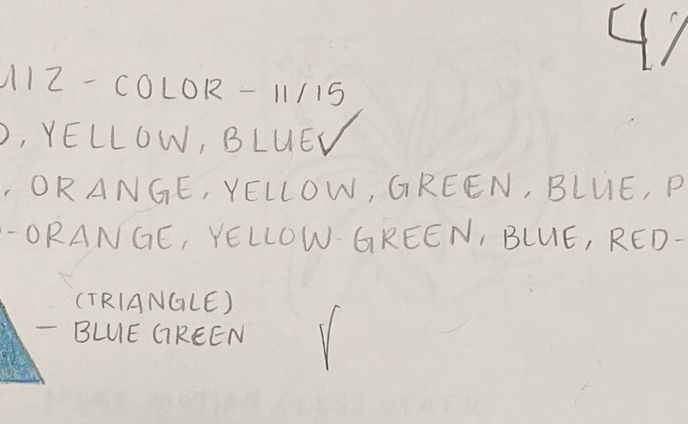 4/
UIZ - COLOR - 11/15
, YELLOW, BLUE
, ORANGE, YELLOW, GREEN, BLUE, P
-ORANGE, YELLOW-GREEN, BLUE, RED-
(TRIANGLE)
- BLUE GREEN